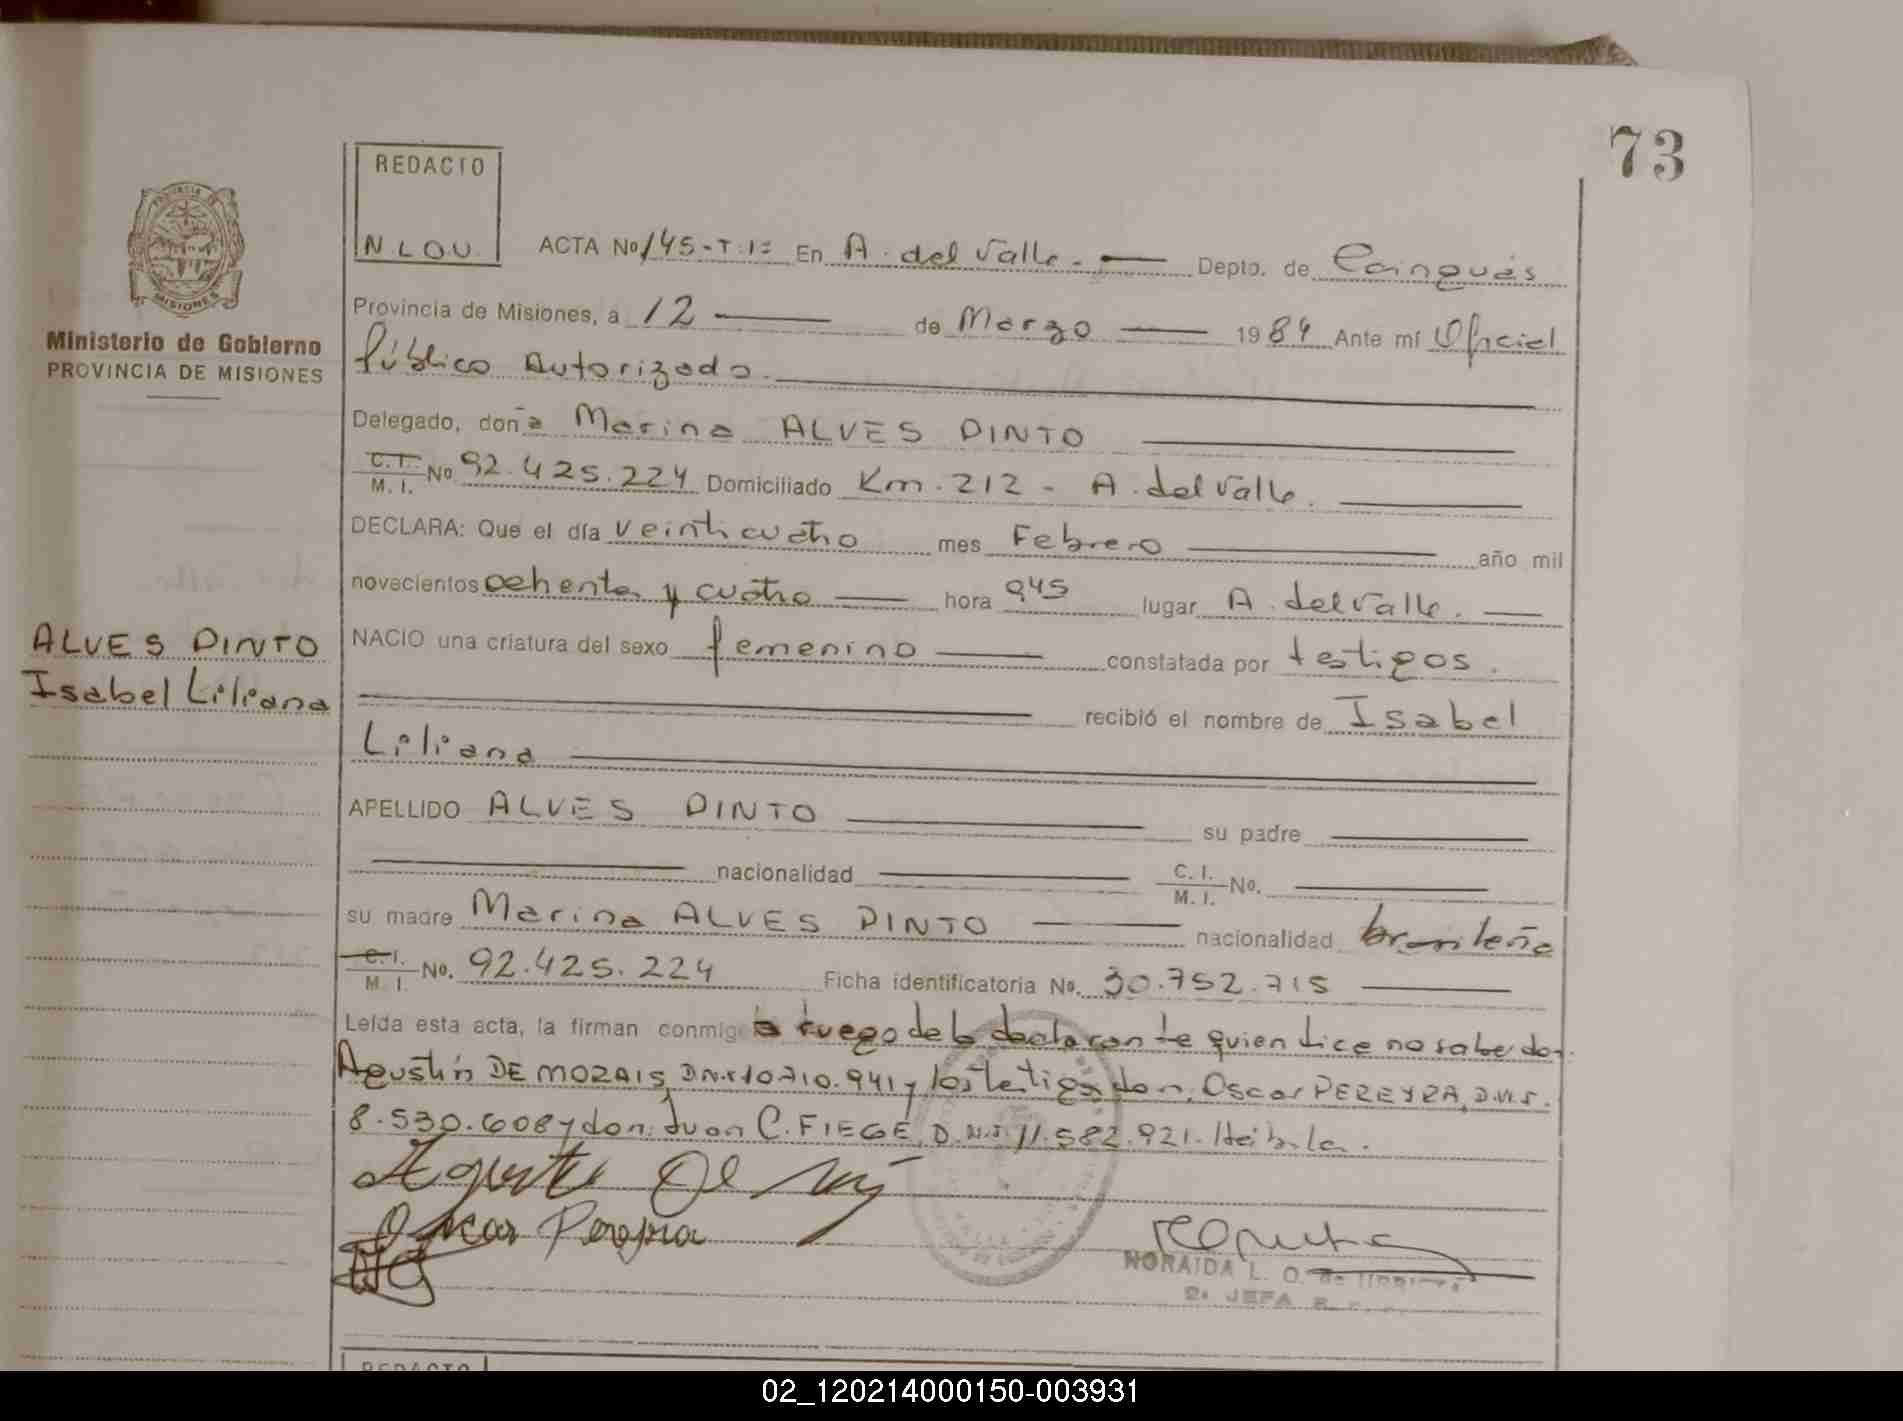 73
REDACTO
N.L.O.U.
ACTA No 145-T:1= En A. del Valle. Depto. de Cainguás
Provincia de Misiones, a 12 de Marzo 1984 Ante mí Oficial
Público Autorizado.
Ministerio de Gobierno
PROVINCIA DE MISIONES
Delegado, doña Marina ALVES PINTO
C.I. M. I. No. 92.425.224 Domiciliado Km. 212 - A. del Valle.
DECLARA: Que el día veinticuatro mes Febrero año mil
novecientos ochenta y cuatro hora 945 lugar A. del Valle.
NACIO una criatura del sexo femenino constatada por testigos.
ALVES PINTO
Isabel Liliana
recibió el nombre de Isabel
Liliana
APELLIDO ALVES PINTO su padre
nacionalidad C. I. M. I. No.
su madre Marina ALVES PINTO nacionalidad brasileña
C. I. M. I. No. 92.425.224 Ficha identificatoria No. 30.752.715
Leída esta acta, la firman conmigo a ruego de la declarante quien dice no sabe don.
Agustín DE MORAIS, D.N.I 10.710.941 y los testigos don. Oscar PEREYRA, D.N.I.
8.530.608 y don: Juan C. FIEGE, D.N.I. 11.582.921.
Oscar Pereyra
NORAIDA L. O. de
2a JEFA
REDACTO
02_120214000150-003931